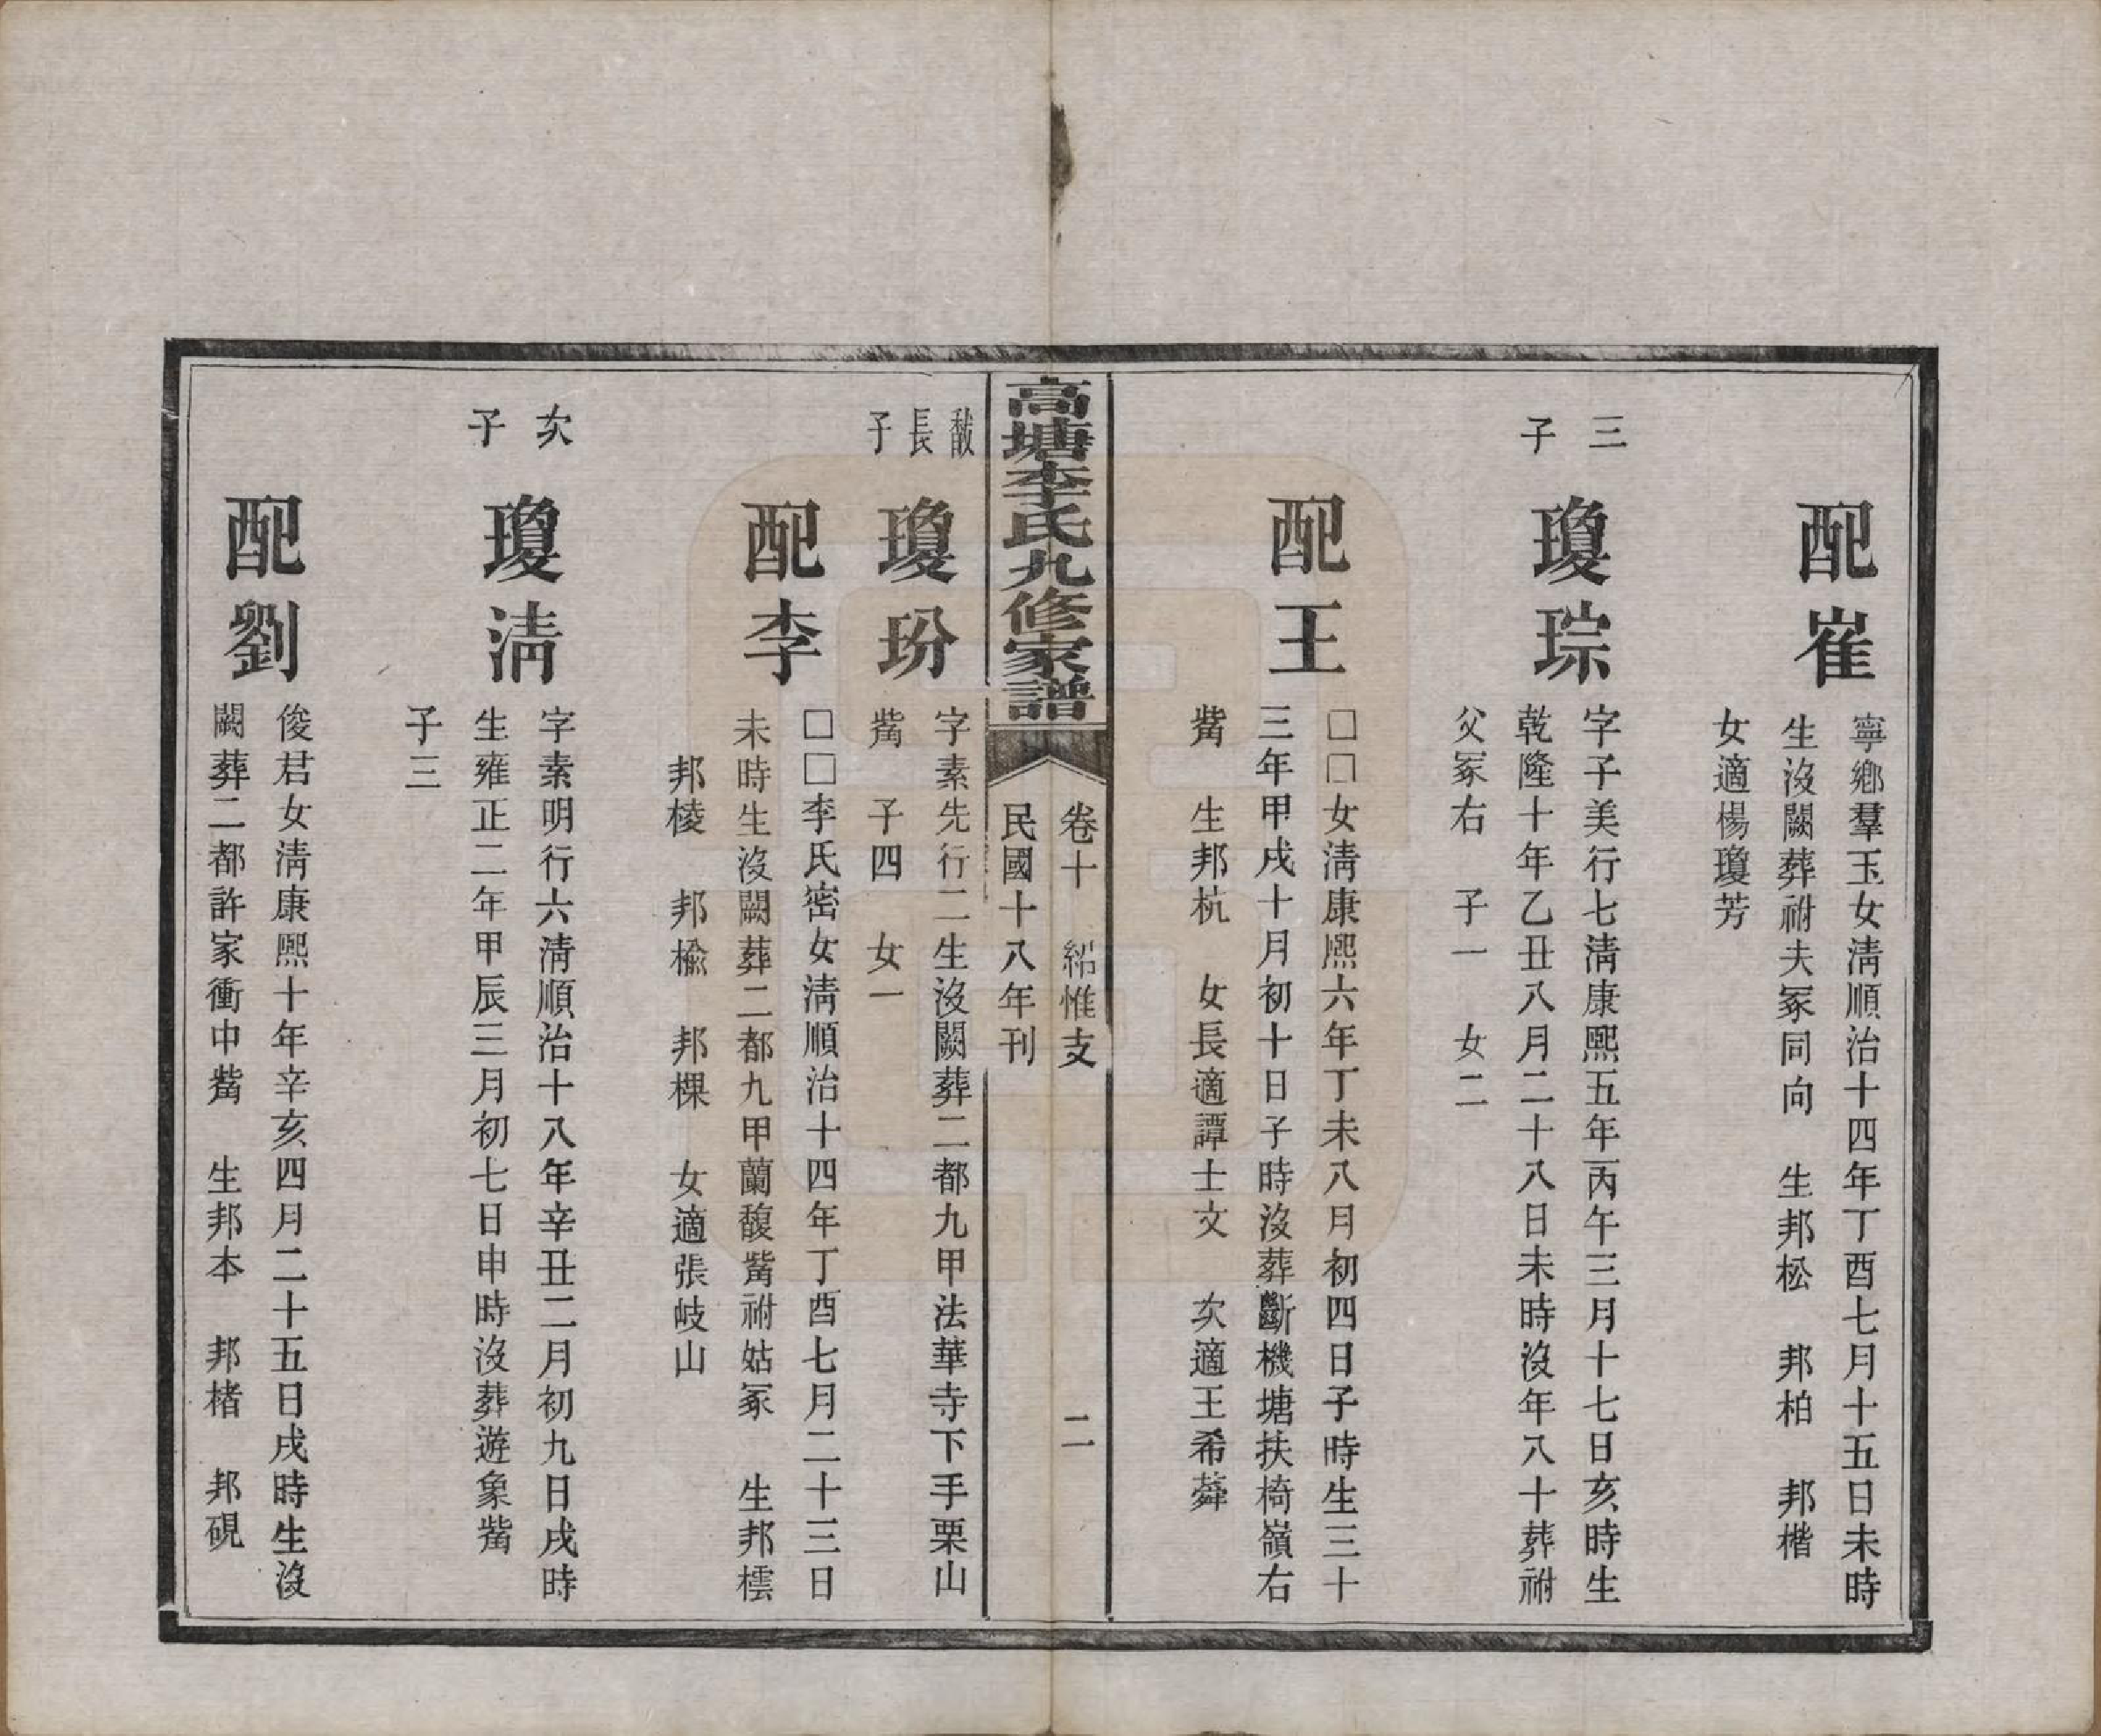 配崔
寧鄉羣玉女淸順治十四年丁酉七月十五日未時
生沒闕葬祔夫冢同向 生邦松 邦柏 邦楷
女適楊瓊芳
三子
瓊琮
字子美行七淸康熙五年丙午三月十七日亥時生
乾隆十年乙丑八月二十八日未時沒年八十葬祔
父冢右 子一 女二
配王
□□女淸康熙六年丁未八月初四日子時生三十
三年甲戌十月初十日子時沒葬斷機塘扶椅嶺右
觜 生邦杭 女長適譚士文 次適王希蕣
高塘李氏九修家譜
卷十 紹惟支 二
民國十八年刊
黻長子
瓊玢
字素先行二生沒闕葬二都九甲法華寺下手栗山
觜 子四 女一
配李
□□李氏密女淸順治十四年丁酉七月二十三日
未時生沒闕葬二都九甲蘭馥觜祔姑冢 生邦橒
邦棱 邦楡 邦棵 女適張岐山
次子
瓊淸
字素明行六淸順治十八年辛丑二月初九日戌時
生雍正二年甲辰三月初七日申時沒葬遊象觜
子三
配劉
俊君女淸康熙十年辛亥四月二十五日戌時生沒
闕葬二都許家衝中觜 生邦本 邦楮 邦硯